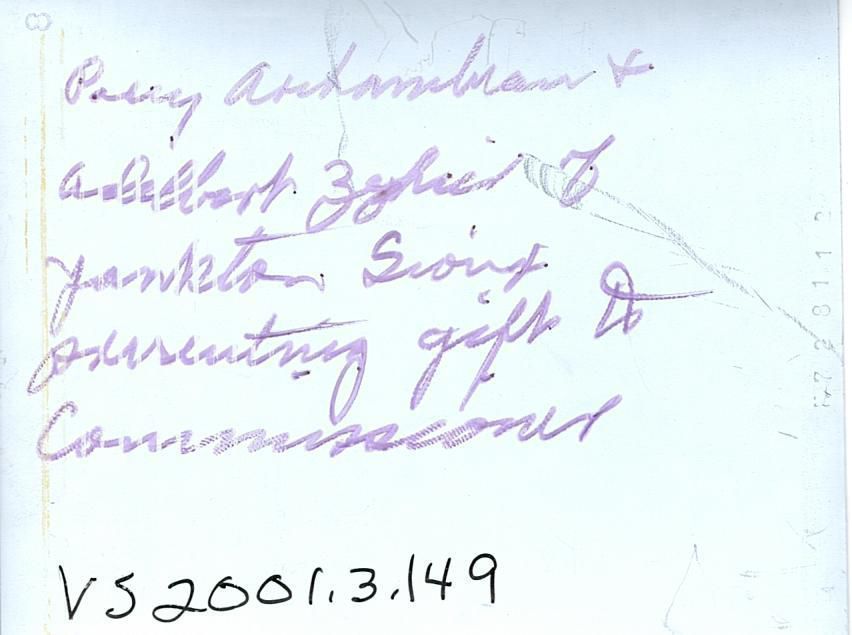 Percy Archambeau &
Adelbert Zephier of
Yankton Sioux
presenting gift to
Commissioner
VS2001.3.149